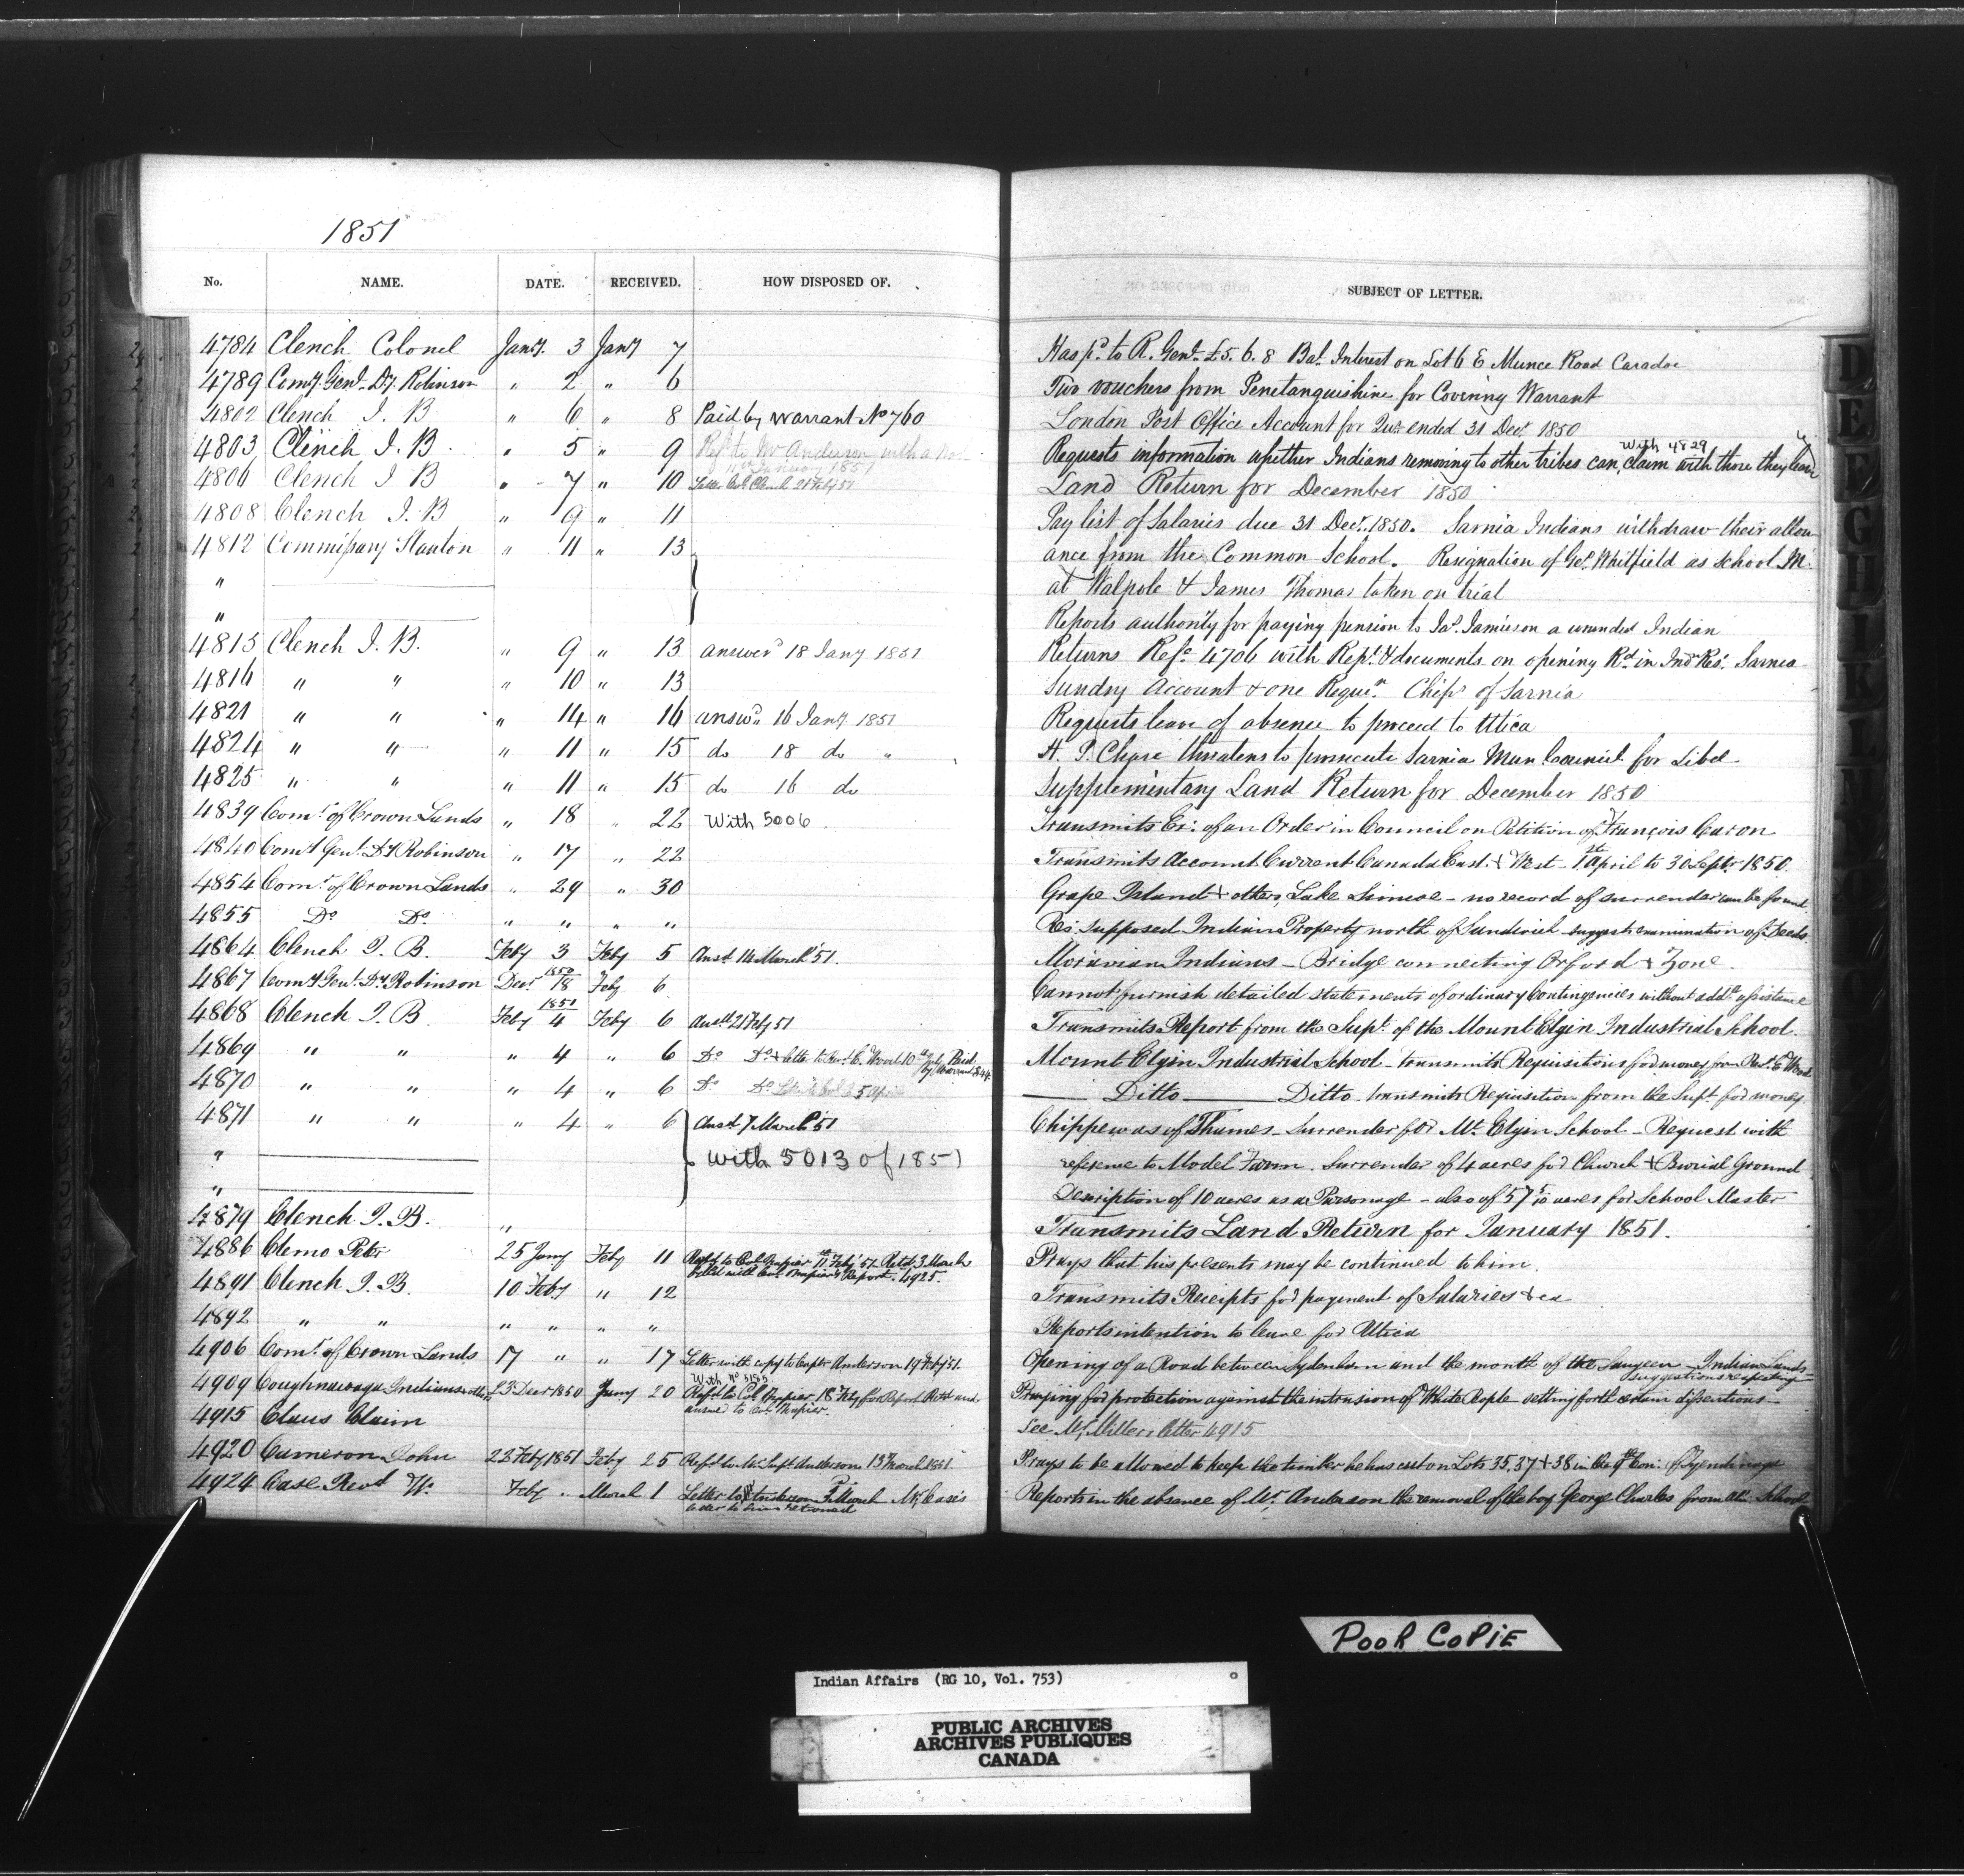 1851
No. NAME. DATE. RECEIVED. HOW DISPOSED OF. SUBJECT OF LETTER.
4784 Clench Colonel Jany. 3 Jany 7 Has pd. to R. Genl. £5. 6. 8 Bal. Interest on Lot 6 E Munce Road Caradoc
4789 Comy. Genl. Dy. Robinson " 2 " 6 Two vouchers from Penetanguishine for Covering Warrant
4802 Clench J. B " 6 " 8 Paid by Warrant No 760 London Post Office Account for Qur. ended 31 Decr. 1850
4803 Clench J. B. " 5 " 9 Refd to Mr Anderson with a January 1851 Requests information whether Indians removing to other tribes can, claim with those they leave
With 4829
4806 Clench J B " 7 " 10 Letter Col. Clench 21 Feby 51 Land Return for December 1850
4808 Clench J. B " 9 " 11 Pay list of Salaries due 31 Decr. 1850. Sarnia Indians withdraw their allow
4812 Commissary Stanton " 11 " 13 ance from the Common School. Resignation of Geo. Whitfield as School Mr.
" at Walpole & James Thomas taken on trial
" Reports authority for paying pension to Jas. Jamieson a wounded Indian
4815 Clench J. B. " 9 " 13 answerd 18 Jany 1851 Returns Refce 4706 with Rept. & documents on opening Rd in Indn Res. Sarnia
4816 " " " 10 " 13 Sundry Account & one Requn. Chips of Sarnia
4821 " " " 14 " 16 answd. 16 Jany 1851 Requests leave of absence to proceed to Utica
4824 " " " 11 " 15 do 18 do " H. P. Chase threatens to prosecute Sarnia Mun Council for Libel
4825 " " " 11 " 15 do 16 do Supplementary Land Return for December 1850
4839 Comr. of Crown Lands " 18 " 22 With 5006 Transmits Ex: of an Order in Council on Petition of François Caron
4840 Comy Genl. Dy Robinson " 17 " 22 Transmits Account Current Canada East. & West – 1st April to 30 Septr 1850.
4854 Comr. of Crown Lands " 29 " 30 Grape Island & others, Lake Simcoe – no record of surrender can be found.
4855 Do Do " " " " Res. supposed Indian Property north of Sandwich suggests examination of Deeds.
4864 Clench J. B. Feby 3 Feby 5 Ansd. 14 March '51. Moravian Indians – Bridge connecting Orford & Zone.
4867 Comy Genl. Dy Robinson Decr 1850 18 Feby 6 Cannot furnish detailed statements of ordinary Contingencies without addl. assistance
4868 Clench J. B. 1851 Feby 4 Feby 6 Ansd 21 Feby 51 Transmits Report from the Supt. of the Mount Elgin Industrial School.
4869 " " " 4 " 6 Do Do & letter to Revd. E. Wood 10th July Paid by Warrant Mount Elgin Industrial School – transmits Requisitions for money from Revd. E Wood
4870 " " " 4 " 6 Do Do Ditto Ditto transmits Requisition from the Supt. for money.
4871 " " " 4 " 6 Ansd 7 March '51 Chippewas of Thames – Surrender for Mt. Elgin School – Request with
" With 5013 of 1851 reference to Model Farm. Surrender of 4 acres for Church & Burial Ground
" Description of 10 acres as a Parsonage – also of 57 5/10 acres for School Master
4879 Clench J. B. " Transmits Land Return for January 1851.
4886 Clemo Peter 25 Jany Feby 11 Refd. to Col. Napier 11th Feby '51. Retd. 3 March Prays that his presents may be continued to him.
filed with Col. Napier's Report. 4925.
4891 Clench J. B. 10 Feby " 12 Transmits Receipts for payment of Salaries & ca
4892 " " " " " " Reports intention to leave for Utica
4906 Comr. of Crown Lands 17 " " 17 Letter with copy to Captn Anderson 19 Feby 51. Opening of a Road between Sydenham and the mouth of the Saugeen – Indian Lands
suggestions respecting
With No 5155
4909 Coughnawaga Indians & others 23 Decr 1850 Jany 20 Refd to Col Napier 18 Feby for Report Retd and Praying for protection against the intrusion of White People setting forth certain dissentions –
answd to Col. Napier.
4915 Claus Claim See Mr Millers letter 4915
4920 Cameron John 22 Feby 1851 Feby 25 Refd to Mr Supt Anderson 13 March 1851. Prays to be allowed to keep the timber he has cut on Lots 35, 37 & 38 in the Con: of Tyendinaga
4924 Case Revd Wm Feby . March 1 Letter to Anderson March Mr Case's Reports in the absence of Mr. Anderson the removal of the boy George Charles from School
letter to him returned
D
E
POOR COPIE
Indian Affairs (RG 10, Vol. 753)
PUBLIC ARCHIVES
ARCHIVES PUBLIQUES
CANADA